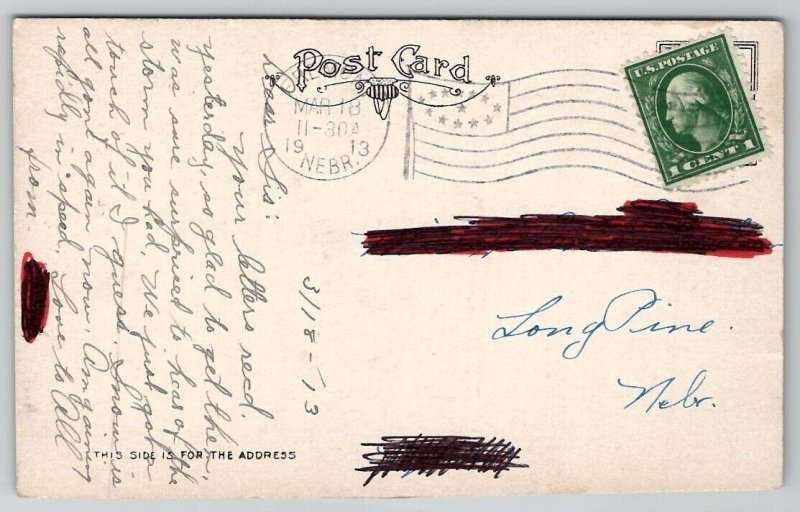 Post Card
MAR 18
11-30A
19 13
NEBR.
U.S. POSTAGE
1 CENT 1
3/18-13
Dear Sis:
Your letters recd.
yesterday, so glad to get them,
was some surprised to hear of the
storm you had, We just got a
touch of it I guess. Snow is
all gone again now. Am gaining
rapidly in speed, Love to All
from-
Long Pine.
Nebr.
THIS SIDE IS FOR THE ADDRESS